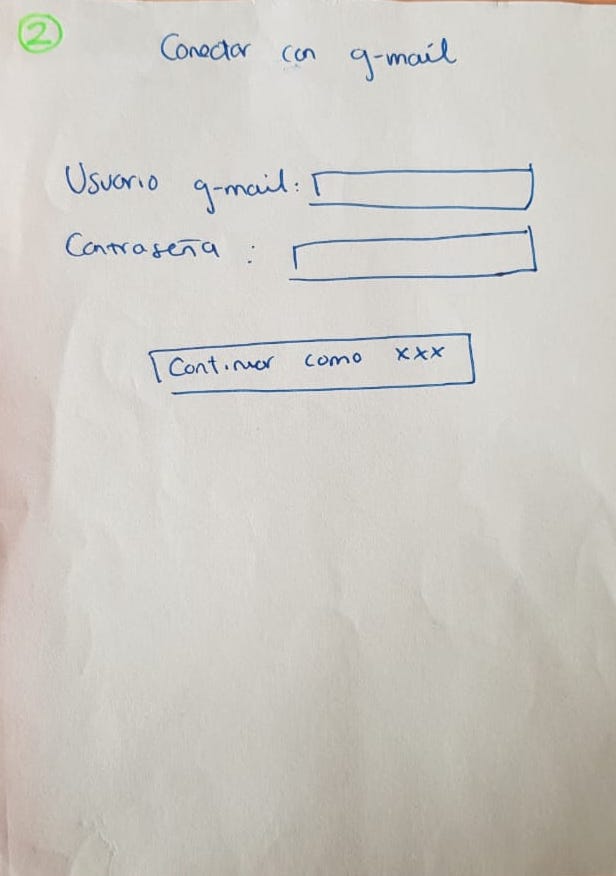 2
Conectar con g-mail
Usuario g-mail:
Contraseña :
Continuar como xxx